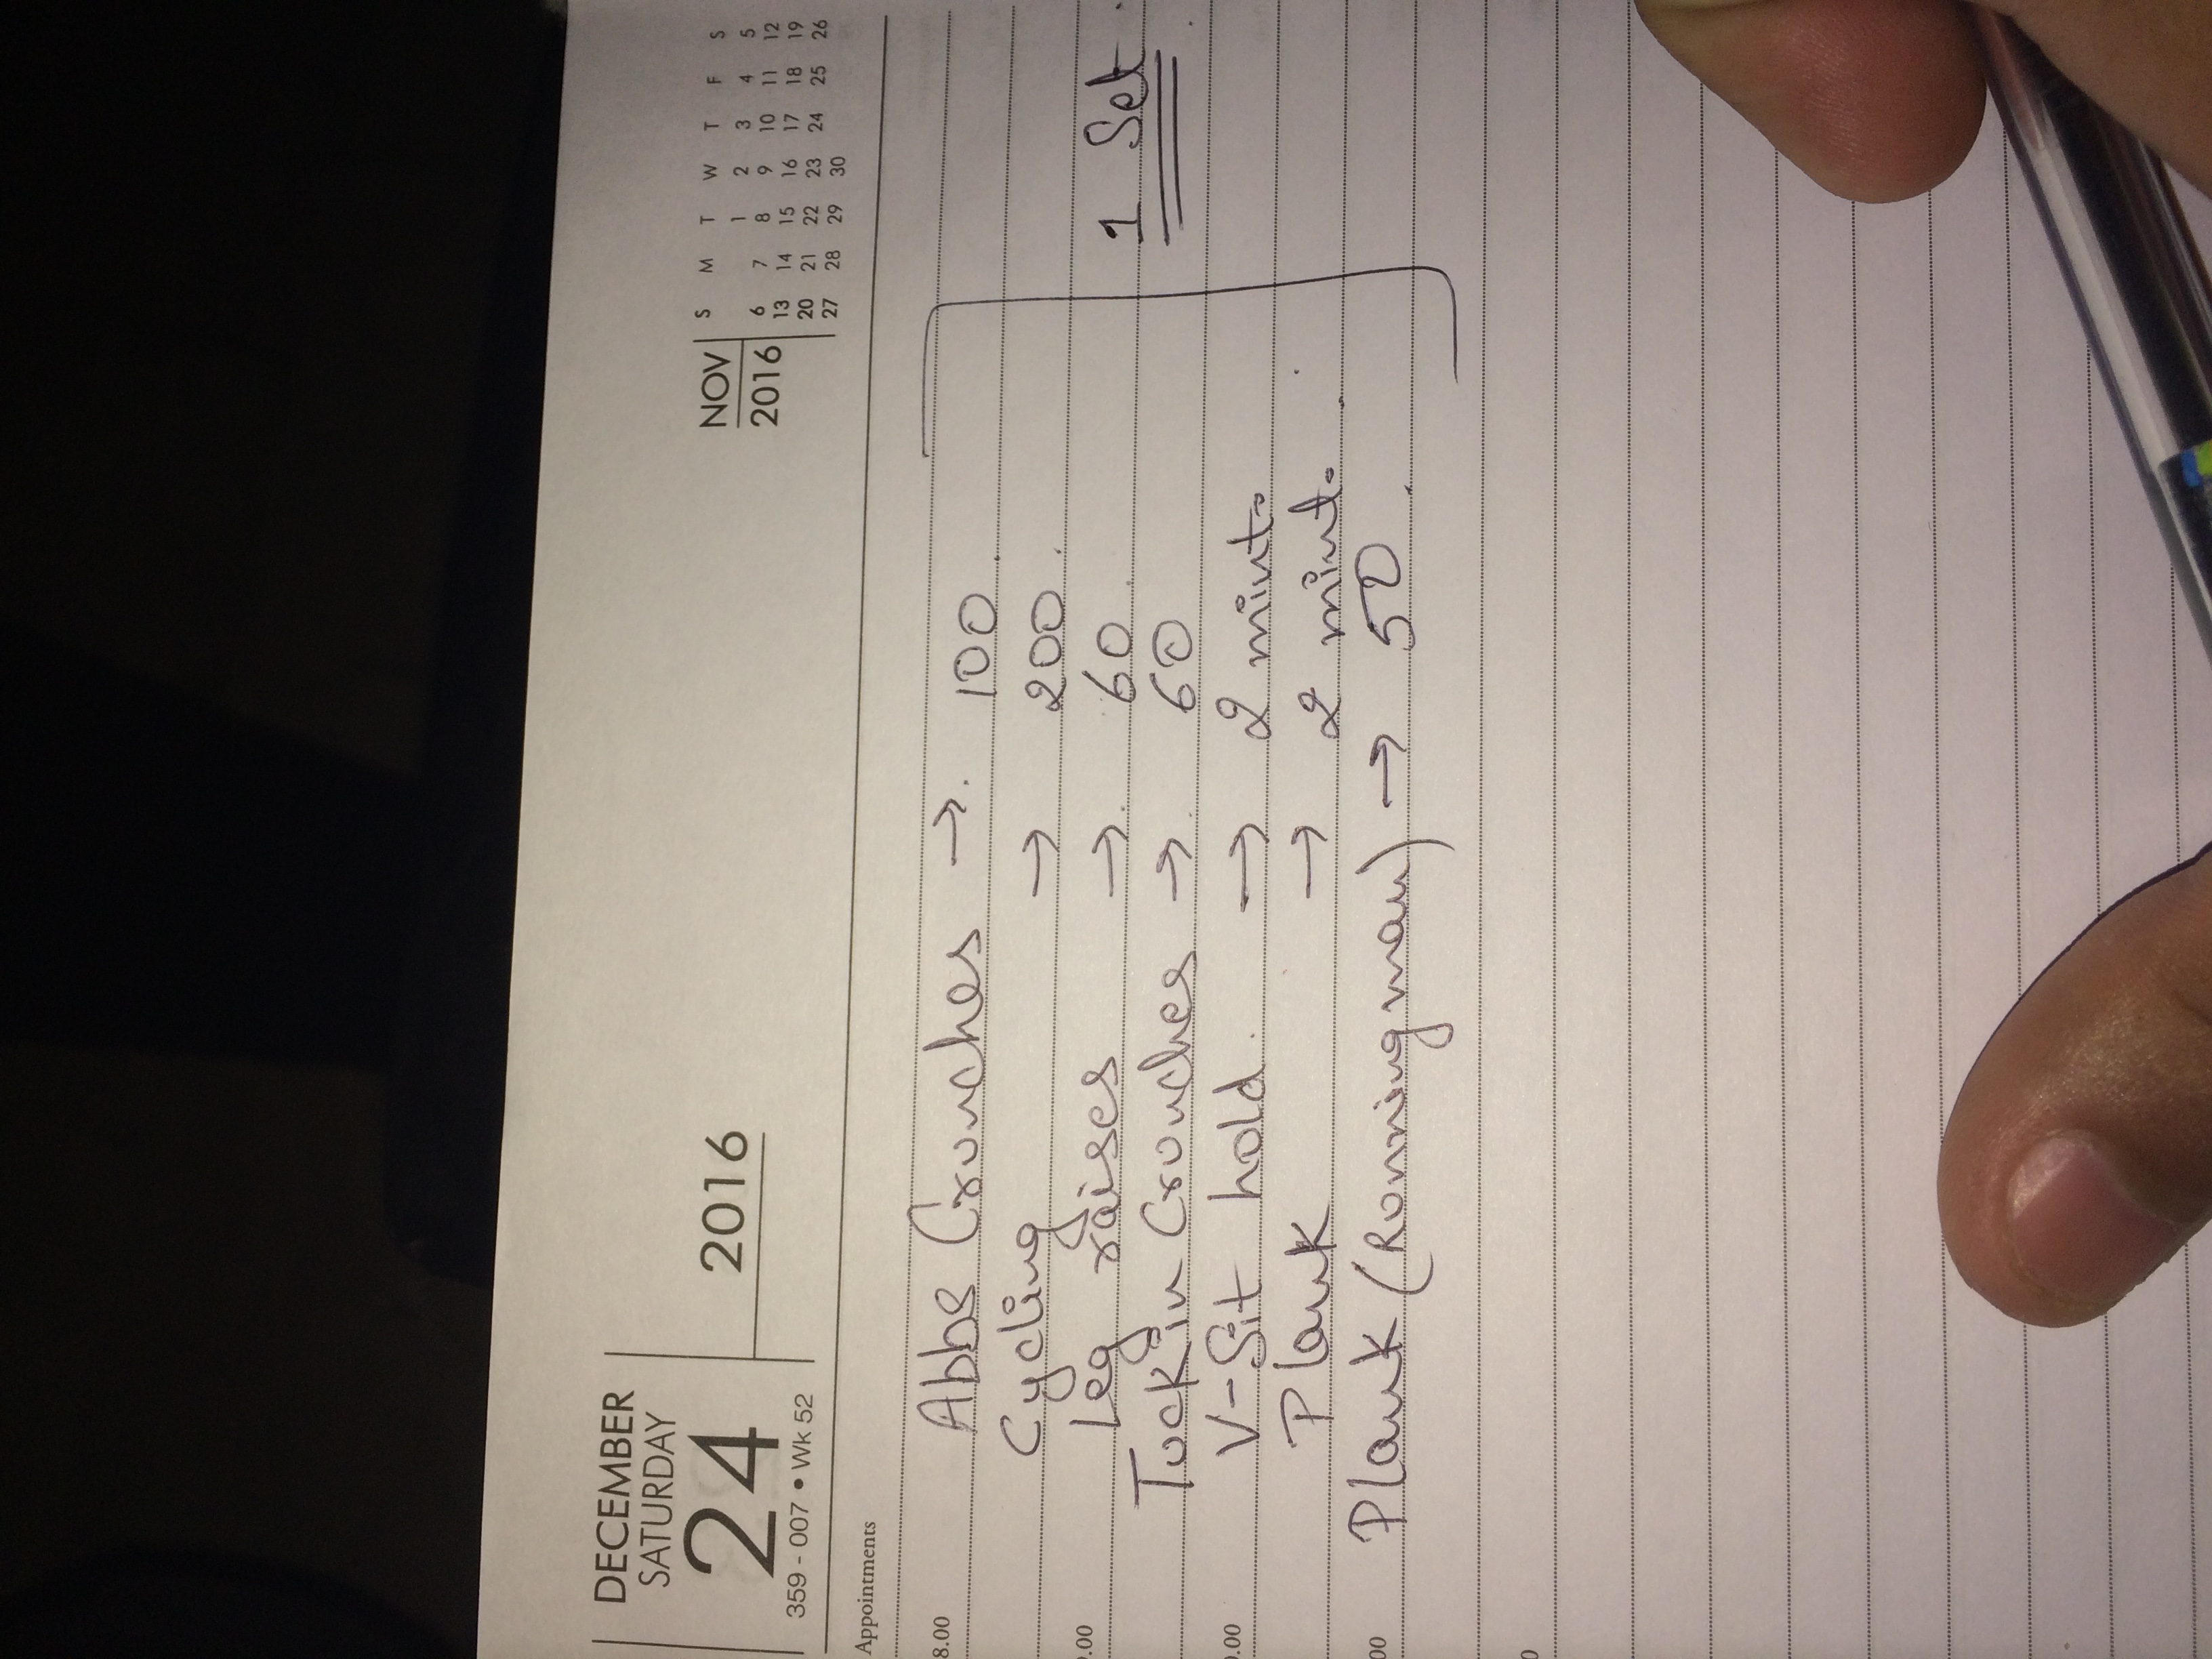 DECEMBER
SATURDAY
24
2016
359 - 007 • Wk 52
NOV
2016
S M T W T F S
1 2 3 4 5
6 7 8 9 10 11 12
13 14 15 16 17 18 19
20 21 22 23 24 25 26
27 28 29 30
Appointments
8.00
Abbs Crunches → 100
Cycling → 200
.00
Leg raises → 60
Tuck in Crouches → 60
.00
V-Sit hold → 2 mint.
Plank → 2 mint.
00
Plank (Ronningman) → 50
0
1 Set